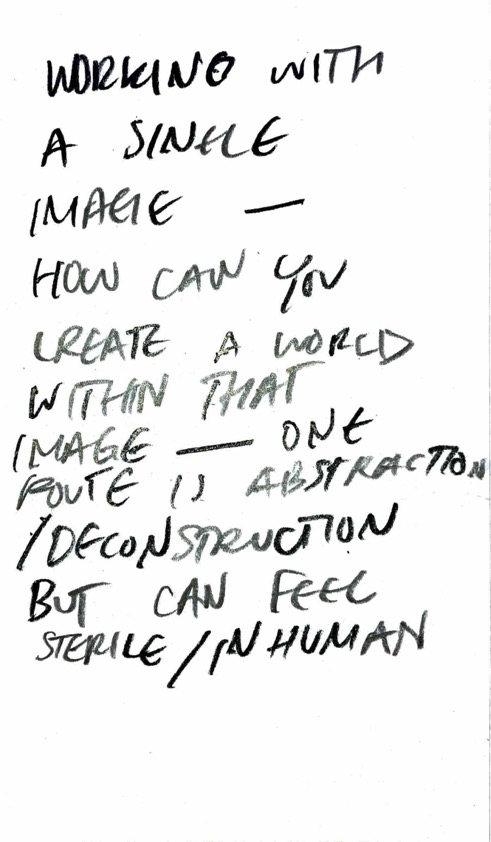 WORKING WITH
A SINGLE
IMAGE —
HOW CAN YOU
CREATE A WORLD
WITHIN THAT
IMAGE — ONE
ROUTE IS ABSTRACTION
/DECONSTRUCTION
BUT CAN FEEL
STERILE/INHUMAN